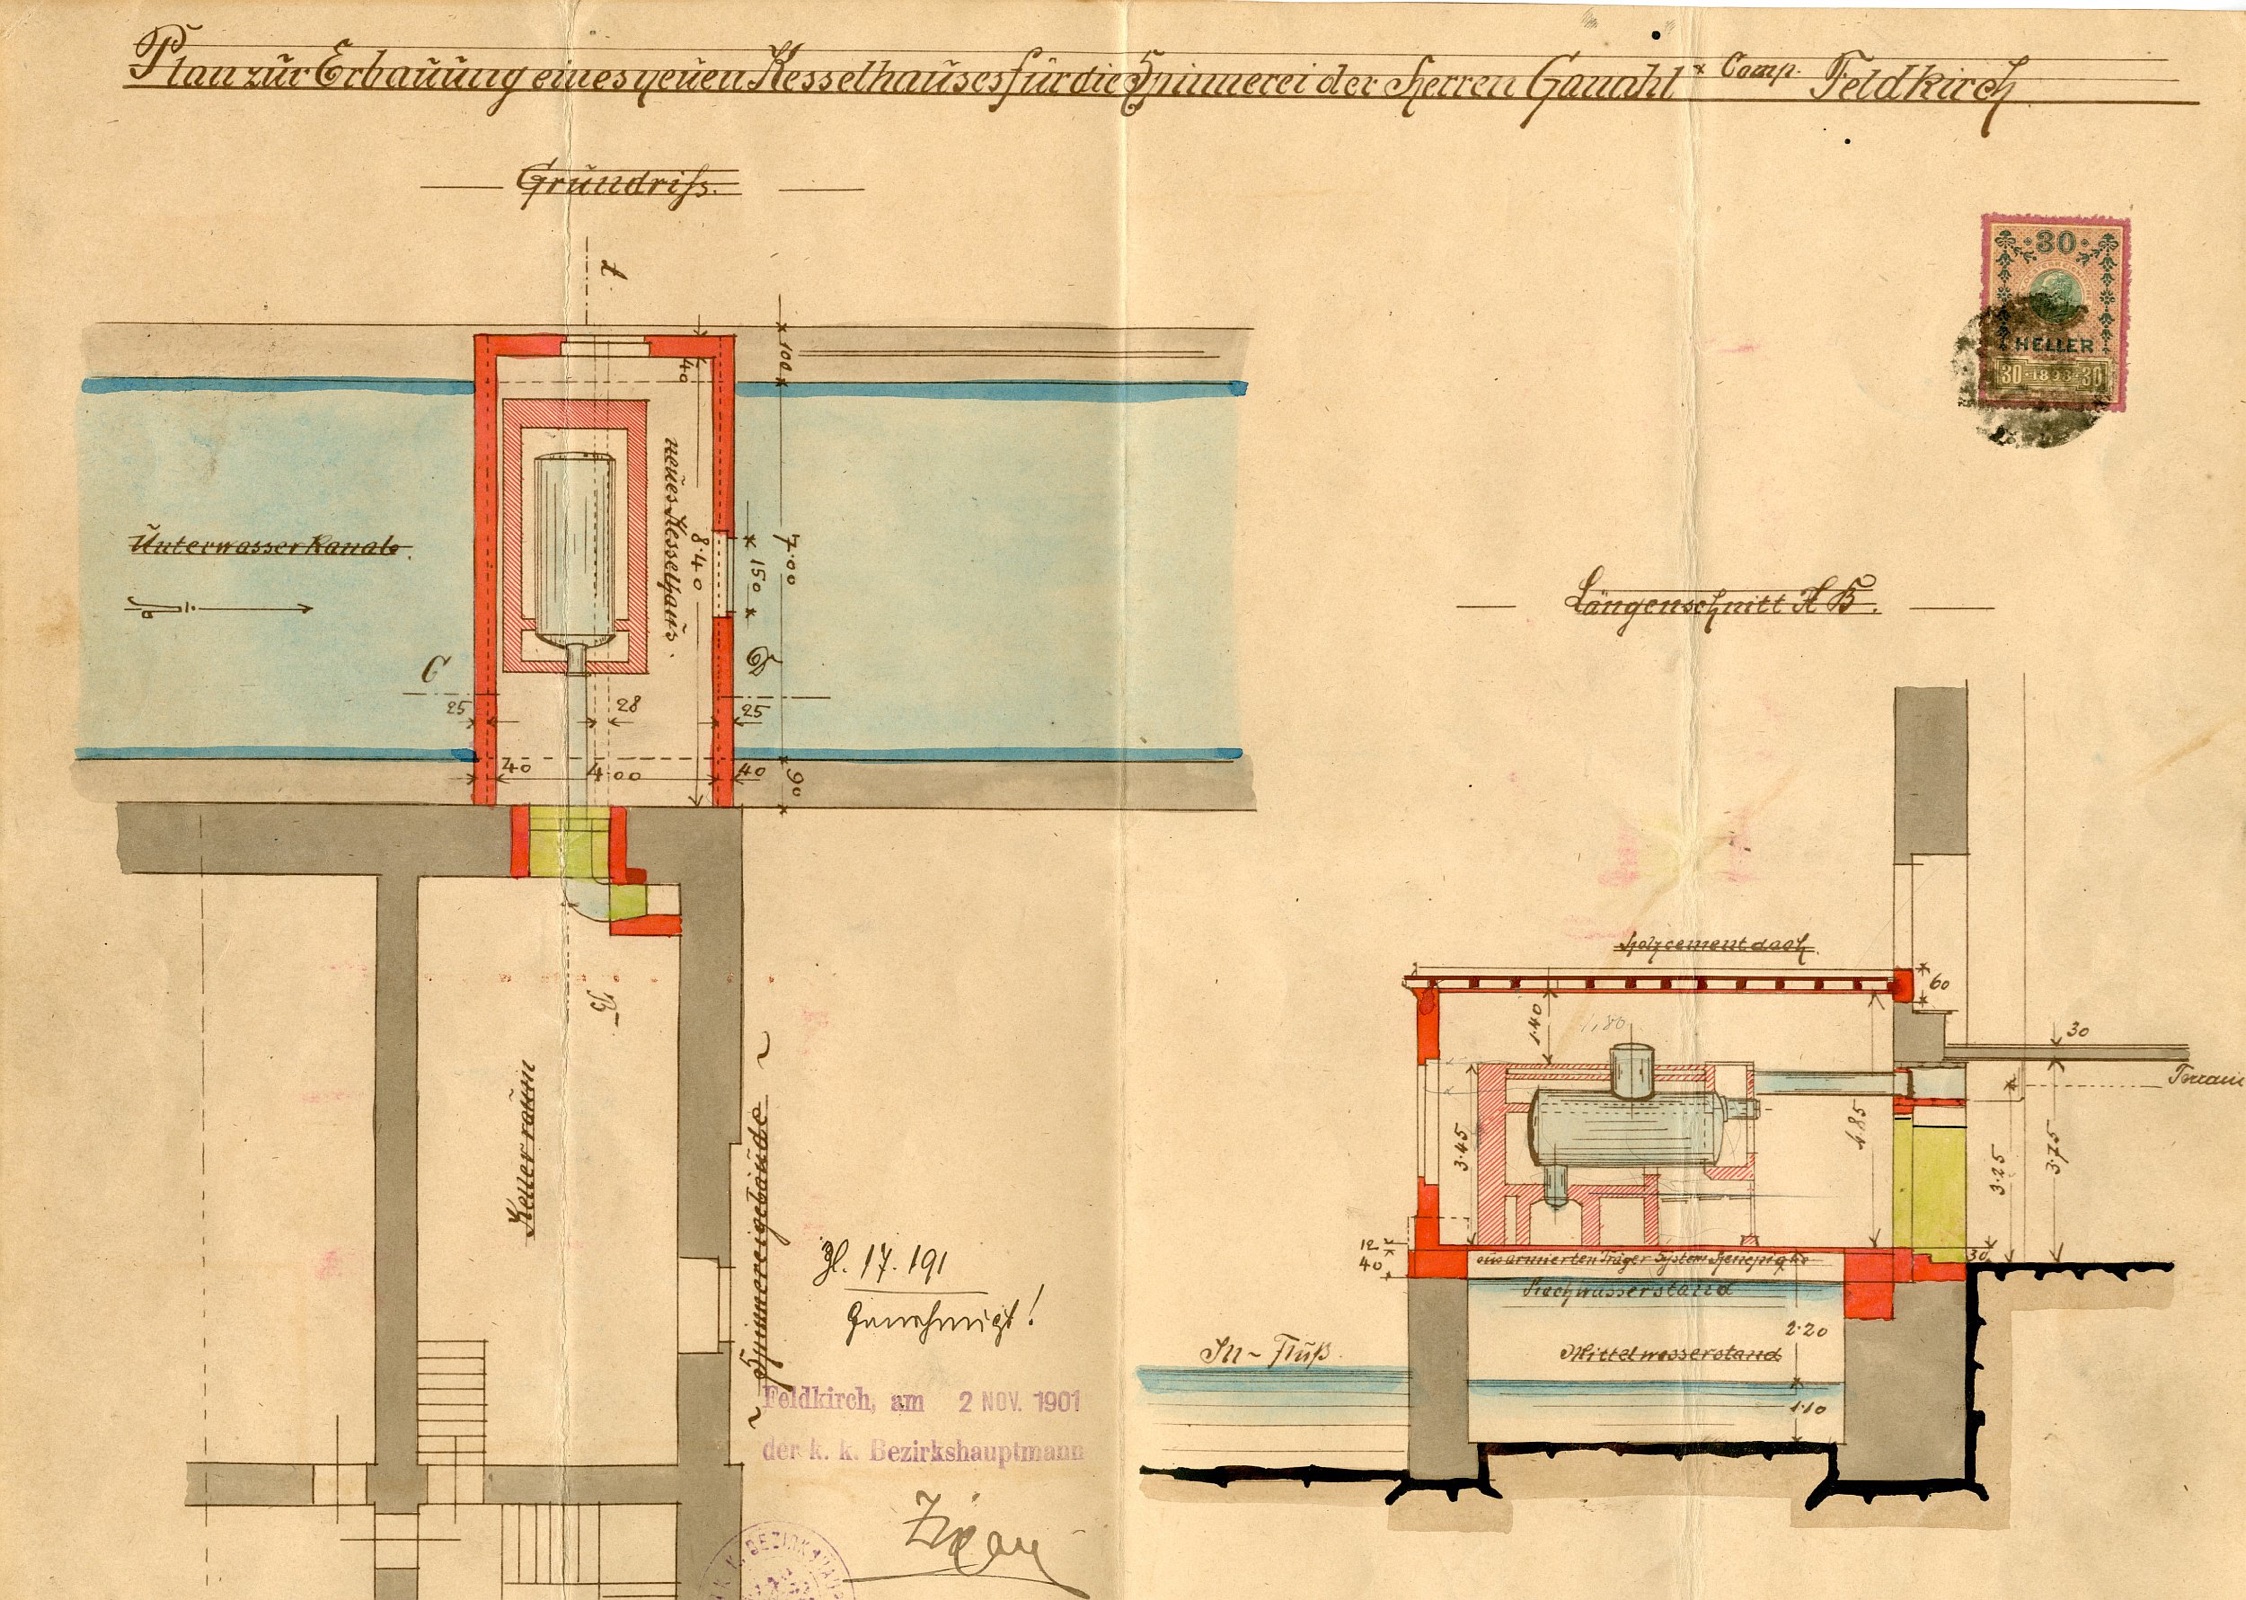 Plan zur Erbauung eines neuen Kesselhauses für die Spinnerei der Herren Ganahl & Comp. Feldkirch
Grundriss.
A
30
HELLER
30 · 1898 · 30
100
40
Unterwasser Kanal.
neues Kesselhaus.
8.40
7.00
150
C
D
25
28
25
40
4.00
40
90
B
Kellerraum
Spinnereigebäude
Zl. 17.191
Genehmigt!
Feldkirch, am 2 NOV. 1901
der k. k. Bezirkshauptmann
K. K. BEZIRKSHAUP
Längenschnitt A B.
Holzcementdach.
60
1.40
1,80
30
Terrain
3.45
4.85
3.25
3.75
12
40
30
aus armierten Träger System Henepique
Hochwasserstand
2.20
Mittelwasserstand
Ill-Fluß.
1.10